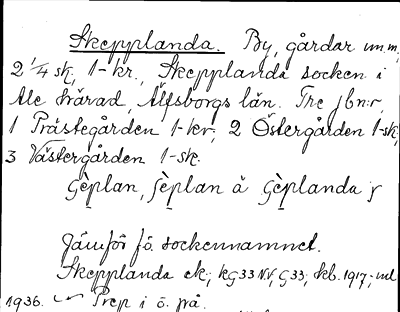 Skepplanda. By, gårdar m.m.,
2 1/4 sk, 1-kr., Skepplanda socken i
Ale härad, Älfsborgs län. Tre jbnr,
1 Prästegården 1-kr, 2 Östergården 1-sk,
3 Västergården 1-sk.
Jämför fö. sockennamnet.
Skepplanda ek, kG33 NV, G33, skb. 1917, ml
1936. Prep i ö. på.